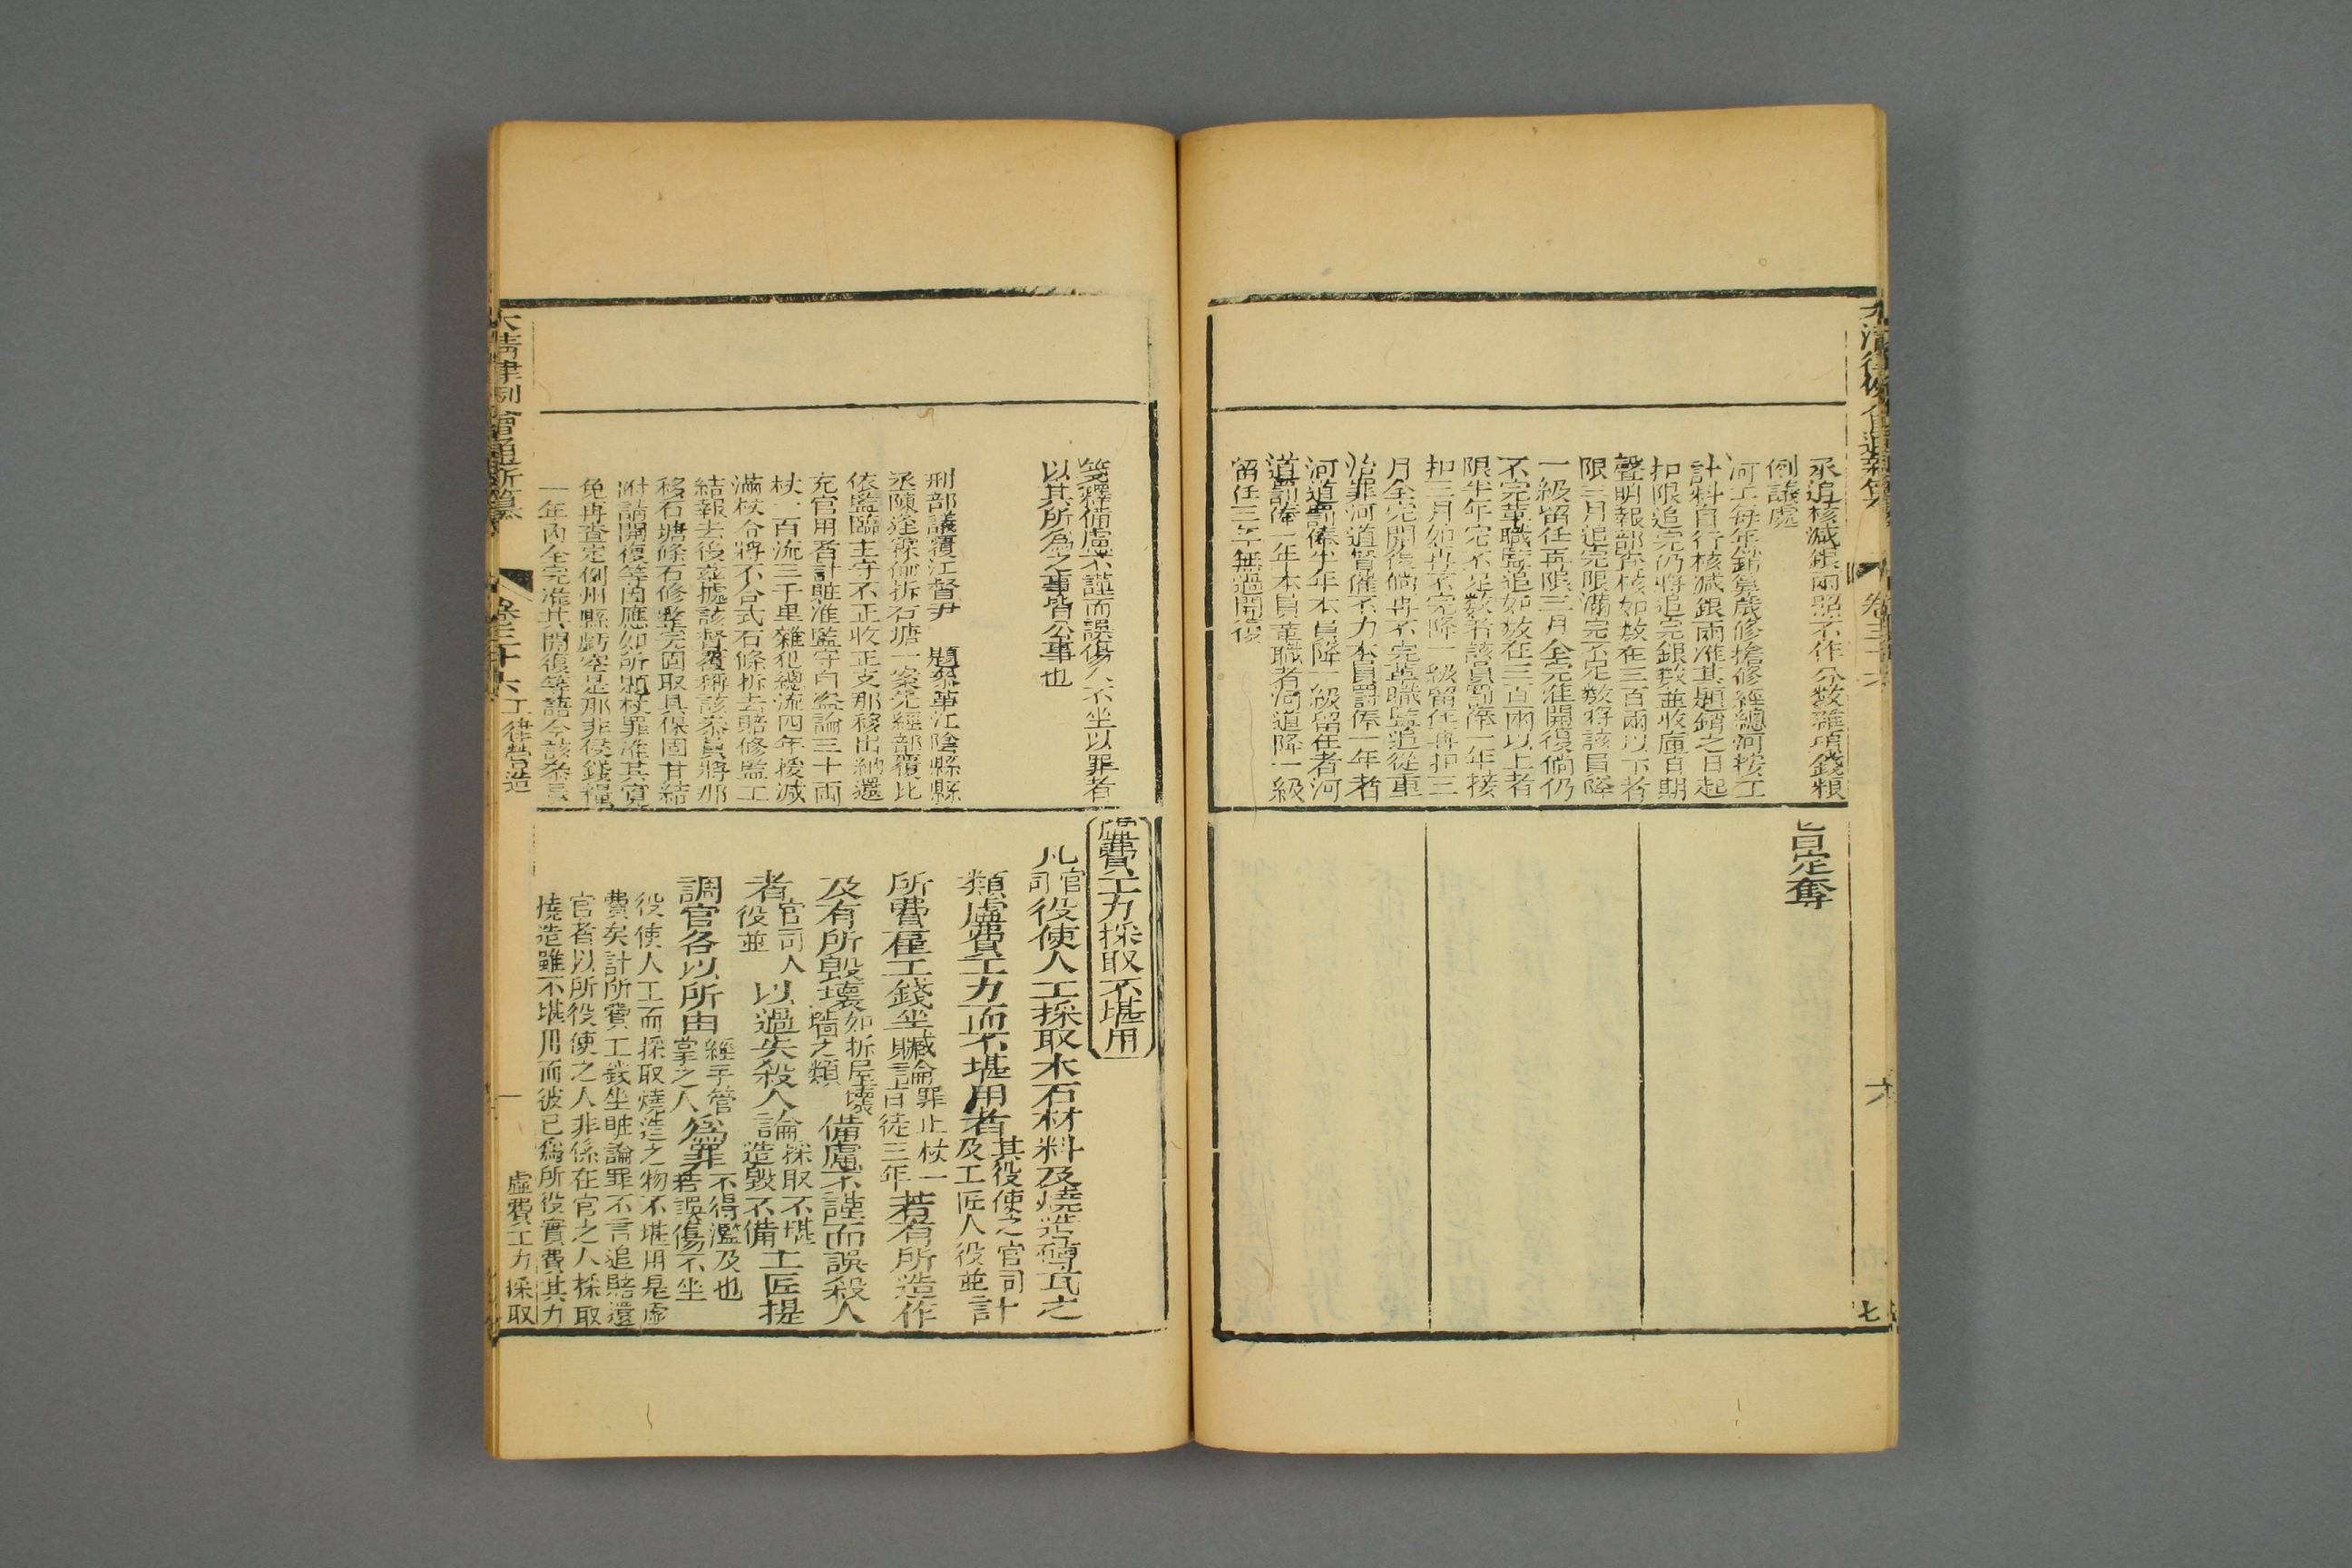 承追核減銀兩照不作分數雜項錢糧
例議處
河工每年錢算歲修搶修經總河按工
計料自行核減銀兩准其題銷之日起
扣限追完仍將追完銀數並收庫日期
聲明報部查核如數在三百兩以下者
限三月追完限滿完不足數將該員降
一級留任再限三月全完准開復倘仍
不完革職監追如數在三百兩以上者
限半年完不足數者該員罰俸一年接
扣三月如再不完降一級留任再扣三
月全完開復倘再不完革職監追從重
治罪河道督催不力本員罰俸一年者
河道罰俸半年本員降一級留任者河
道罰俸一年本員革職者河道降一級
留任三年無過開復
旨定奪
箋釋備慮不謹而誤傷人不坐以罪者
以其所為之事皆公事也
刑部議覆江督尹 題參革江陰縣縣
丞陳逢霖偷折石塘一案先經部覆比
依監臨主守不正收正支那移出納還
充官用者計贓准監守自盜論三十兩
杖一百流三千里雜犯總流四年援減
滿杖合將不合式石條折去賠修監工
結報去後茲據該督覆稱該參員將那
移石塘條石修整完固取具保固甘結
附請開復等因應如所題杖罪准其寬
免再查定例州縣虧空是那非侵錢糧
一年內全完准其開復等語今該參員
虛費工力採取不堪用
凡官司役使人工採取木石材料及燒造磚瓦之
類虛費工力而不堪用者其役使之官司及工匠人役並計
所費雇工錢坐贓論罪止杖一百徒三年若有所造作
及有所毀壞如折屋壞墻之類備慮不謹而誤殺人
者官司人役並以過失殺人論採取不堪造毀不備工匠提
調官各以所由經手管掌之人為罪不得濫及也若誤傷不坐
役使人工而採取燒造之物不堪用是虛
費矣計所費工錢坐贓論罪不言追賠還
官者以所役使之人非係在官之人採取
燒造雖不堪用而彼已為所役實費其力
大清律例會通新纂 卷三十六工律營造 虛費工力採取